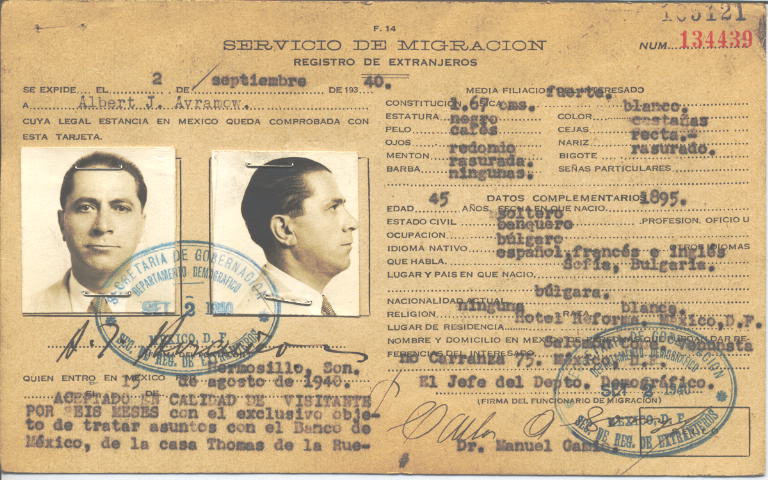 F. 14
SERVICIO DE MIGRACION
REGISTRO DE EXTRANJEROS
NUM. 134439
SE EXPIDE EL 2 DE septiembre DE 193 40.
A Albert J. Avramow.
CUYA LEGAL ESTANCIA EN MEXICO QUEDA COMPROBADA CON
ESTA TARJETA.
MEDIA FILIACION DEL INTERESADO
CONSTITUCION FISICA fuerte.
ESTATURA 1.67 cms. COLOR blanco.
PELO negro CEJAS castañas
OJOS cafés NARIZ recta.-
MENTON redondo BIGOTE rasurado.
BARBA rasurada. SEÑAS PARTICULARES
ningunas.
DATOS COMPLEMENTARIOS
EDAD 45 AÑOS. FECHA EN QUE NACIO 1895.
ESTADO CIVIL soltero PROFESION, OFICIO U
OCUPACION banquero
IDIOMA NATIVO búlgaro OTROS IDIOMAS
QUE HABLA. español, francés e inglés
LUGAR Y PAIS EN QUE NACIO, Sofía, Bulgaria.
NACIONALIDAD ACTUAL búlgara.
RELIGION ninguna RAZA blanca.
LUGAR DE RESIDENCIA Hotel Reforma México, D.F.
NOMBRE Y DOMICILIO EN MEXICO DE PERSONAS QUE PUEDAN DAR RE-
FERENCIAS DEL INTERESADO. Venusta
no Carranza 75. México, D.F.
SECRETARIA DE GOBERNACION
DEPARTAMENTO DEMOGRAFICO
SET 2 1940
MEXICO, D. F.
SEC. DE REG. DE EXTRANJEROS
QUIEN ENTRO EN MEXICO Hermosillo, Son.
EL DE de agosto de 1940.
ACEPTADO EN CALIDAD DE VISITANTE
POR SEIS MESES con el exclusivo obje-
to de tratar asuntos con el Banco de
México, de la casa Thomas de la Rue-
El Jefe del Depto. Demográfico.
(FIRMA DEL FUNCIONARIO DE MIGRACION)
SECRETARIA DE GOBERNACION
DEPARTAMENTO DEMOGRAFICO
SET 2 1940
MEXICO, D. F.
SEC. DE REG. DE EXTRANJEROS
Dr. Manuel Gamio.